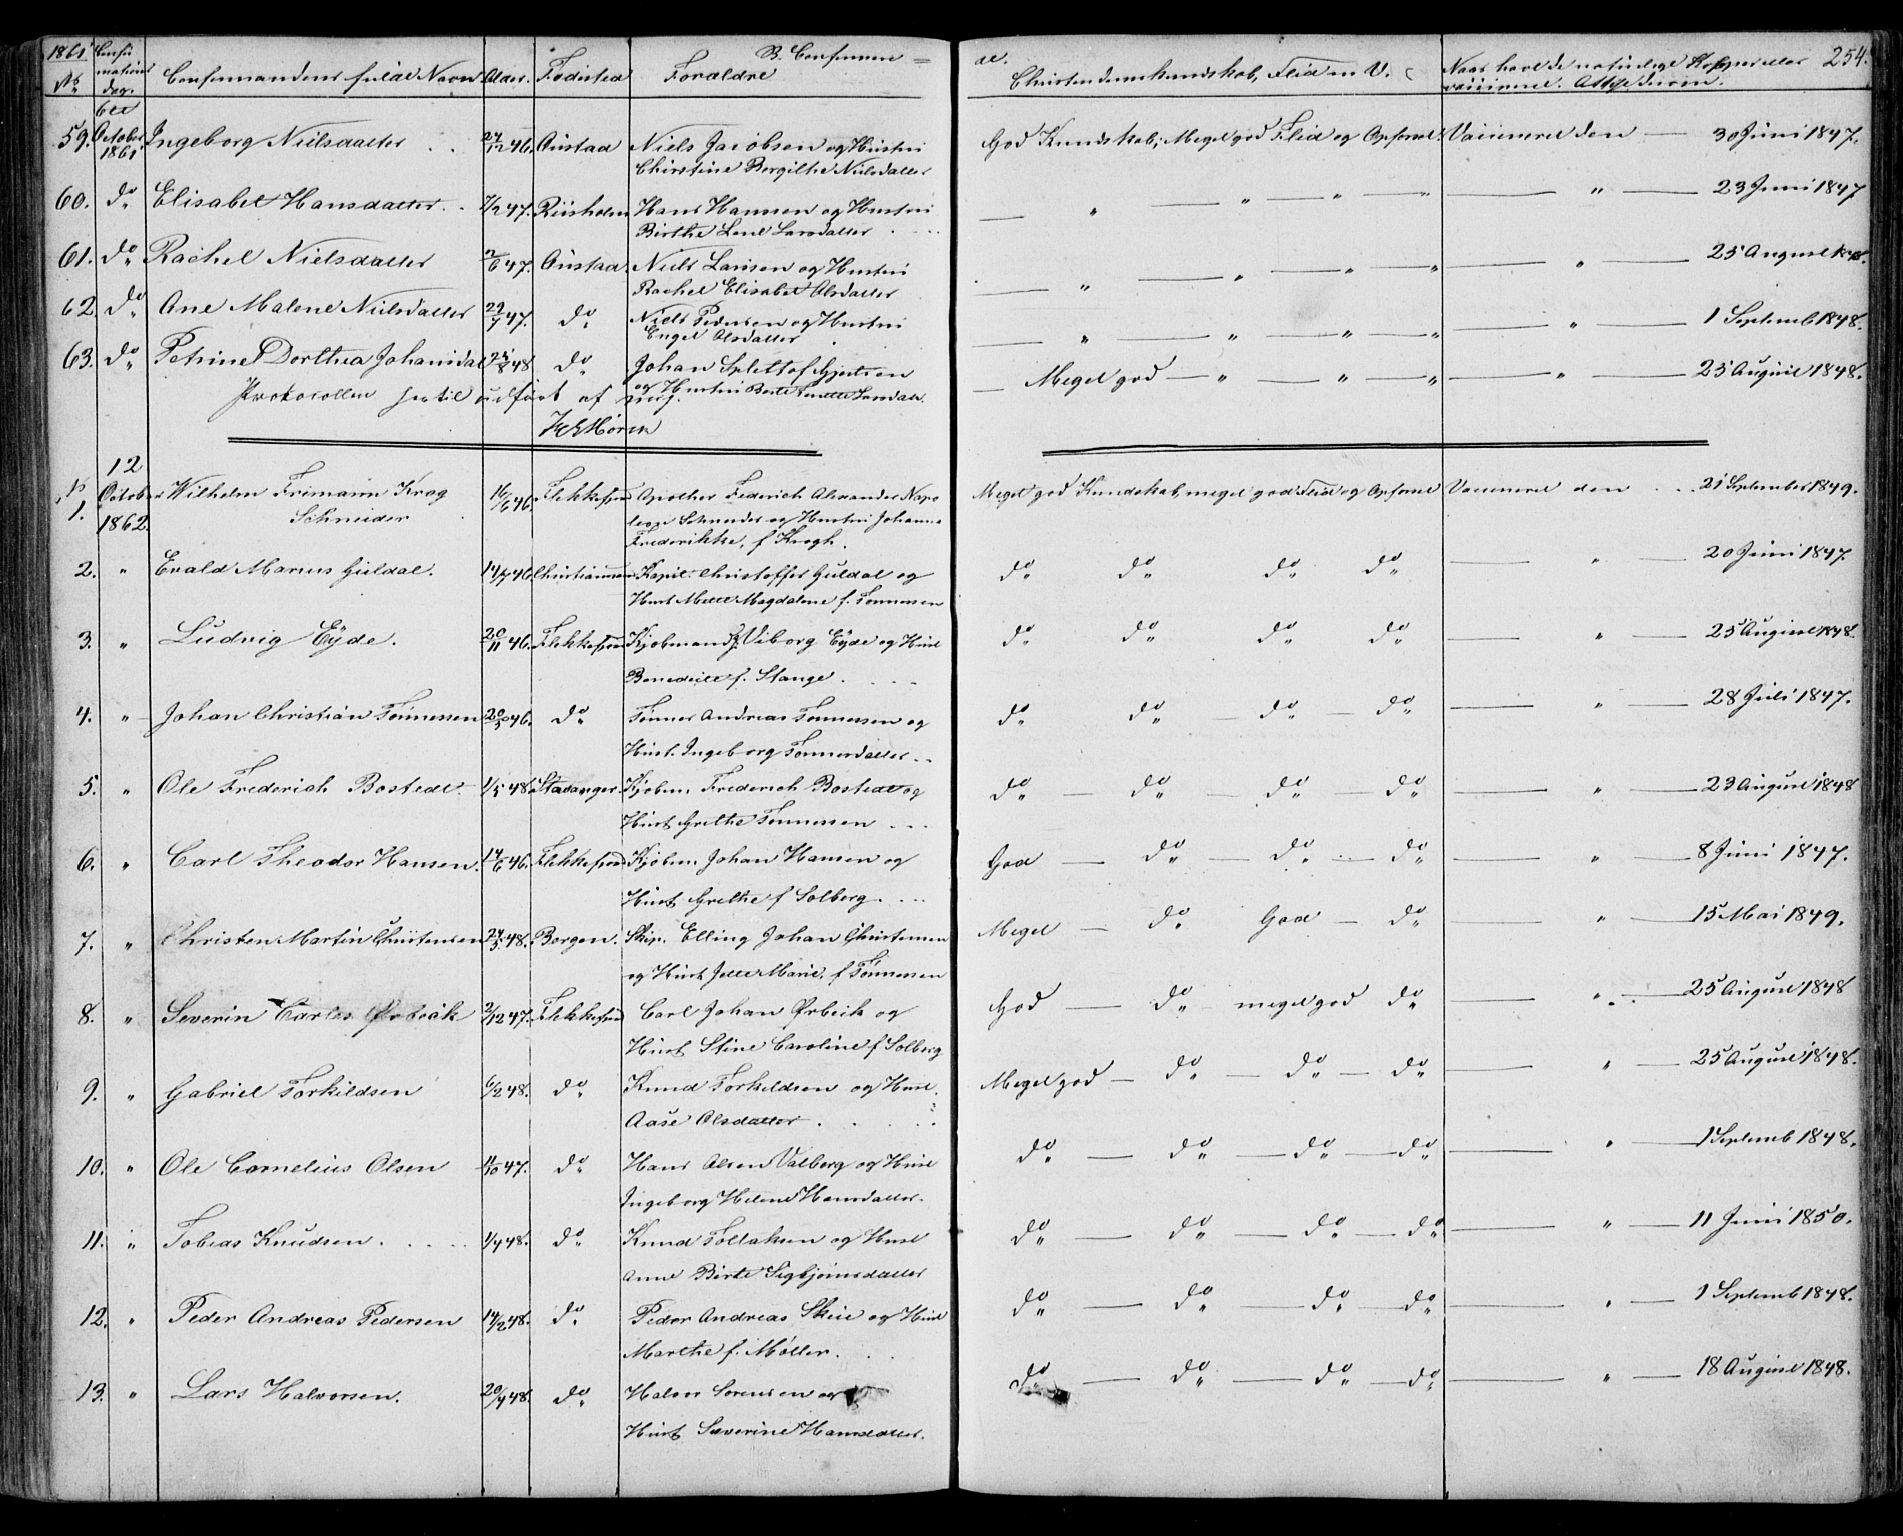 1861 Confirmations dag. Confirmandens fulde Navn Alder. Fødested Forældre B. Confirmen = de. Christendomskundskab, Flid m. V. Naar havde naturlige Kopper eller vaccineret. Attest derom. 254.
59. 6te October 1861 Ingeborg Nielsdatter 27/12 46. Austad Niels Jacobsen og Hustru God Kundskab; Meget god Flid og Opførsel. Vaccineret den — 30 Juni 1847.
Christine Bergithe Nielsdatter
60. do Elisabet Hansdatter. 7/2 47. Riisholm Hans Hansen og Hustru — " — " — " — " — " — 23 Juni 1847
Birthe Lene Larsdatter
61. do Rachel Nielsdatter 2/6 47. Austad. Niels Larisen og Hustru — " — " — " — " — " — 25 August 1848.
Rachel Elisabet Olsdatter
62. do Ane Malene Nielsdatter 29/7 47. do Niels Pedersen og Hustru — " — " — " — " — " — 1 Septemb 1848.
Engel Olsdatter
63. do Petrine Dorthea Johansdat 25/8 48 do Johan Splettof Gjertsen — Meget god — " — " — " — " — 25 August 1848.
og Hustru Berte Larsdatt.
Protocollen hertil udført af mig.
12
1. October 1862. Wilhelm Frimann Krog 16/6 46. Flekkefjord Apother Federich Alexander Napo Meget god Kundskab, meget god Flid og Opførsel Vaccineret den 21 September 1849.
Schneider leon Schneider og Hustru Johanne
Frederikke, f Krogh.
2. " Evald Marius Guldal. 14/7 46. Christianssand Kapit. Christoffer Guldal og do do do do — " — 20 Juni 1847.
Hust Mette Magdalene f. Tønnesen
3. " Ludvig Eyde. 20/11 46. Flekkefjord Kjøbmand Viborg Eyde og Hust do do do do — " — 25 August 1848.
Benedicte f. Stange.
4. " Johan Christian Tønnessen 20/3 46. do Tønnes Andreas Tønnessen og do do — do — do — " — 28 Juli 1847.
Hust. Ingeborg Tønnesdatter
5. " Ole Frederich Bostedt. 1/5 48. Stavanger. Kjøbm. Frederich Bostedt og do — do — do — do — " — 23 August 1848
Hust Grethe Tønnessen
6. " Carl Theodor Hansen. 14/6 46. Flekkefjord Kjøbm. Johan Hansen og God — do — do — do — " — 8 Juni 1847.
Hust Grethe f Solberg.
7. " Christen Martin Christensen 24/3 48. Bergen. Skip. Elling Johan Christensen Meget — do God — do — " — 15 Mai 1849.
og Hust Jette Marie, f Tønnessen
8. " Severin Carl Ørbeck 2/12 47. Flekkefjord Carl Johan Ørbeck og God — do — meget god do — " — 25 August 1848
Hust Stine Caroline f Solberg
9. " Gabriel Torkildsen 6/2 48. do Knud Torkildsen og Hust. Meget god — do — do — do — " — 25 August 1848.
Aase Olsdatter
10. " Ole Cornelius Olsen 11/10 47. do Hans Olsen Valberg og Hust do — do — do — do — " — 1 Septemb 1848.
Ingeborg Helene Hansdatter.
11. " Tobias Knudsen. 1/4 48. do Knud Tollaksen og Hust do — do — do — do — " — 11 Juni 1850.
Anne Birte Sigbjørnsdatter
12. " Peder Andreas Pedersen 14/2 48. do Peder Andreas Skeie og Hust do — do — do — do — " — 1 Septemb 1848.
Marthe f. Møller.
13. " Lars Halvorsen. 20/4 48. do Halvor Sørensen og do — do — do — do — " — 18 August 1848.
Hust Severine Hansdatter.